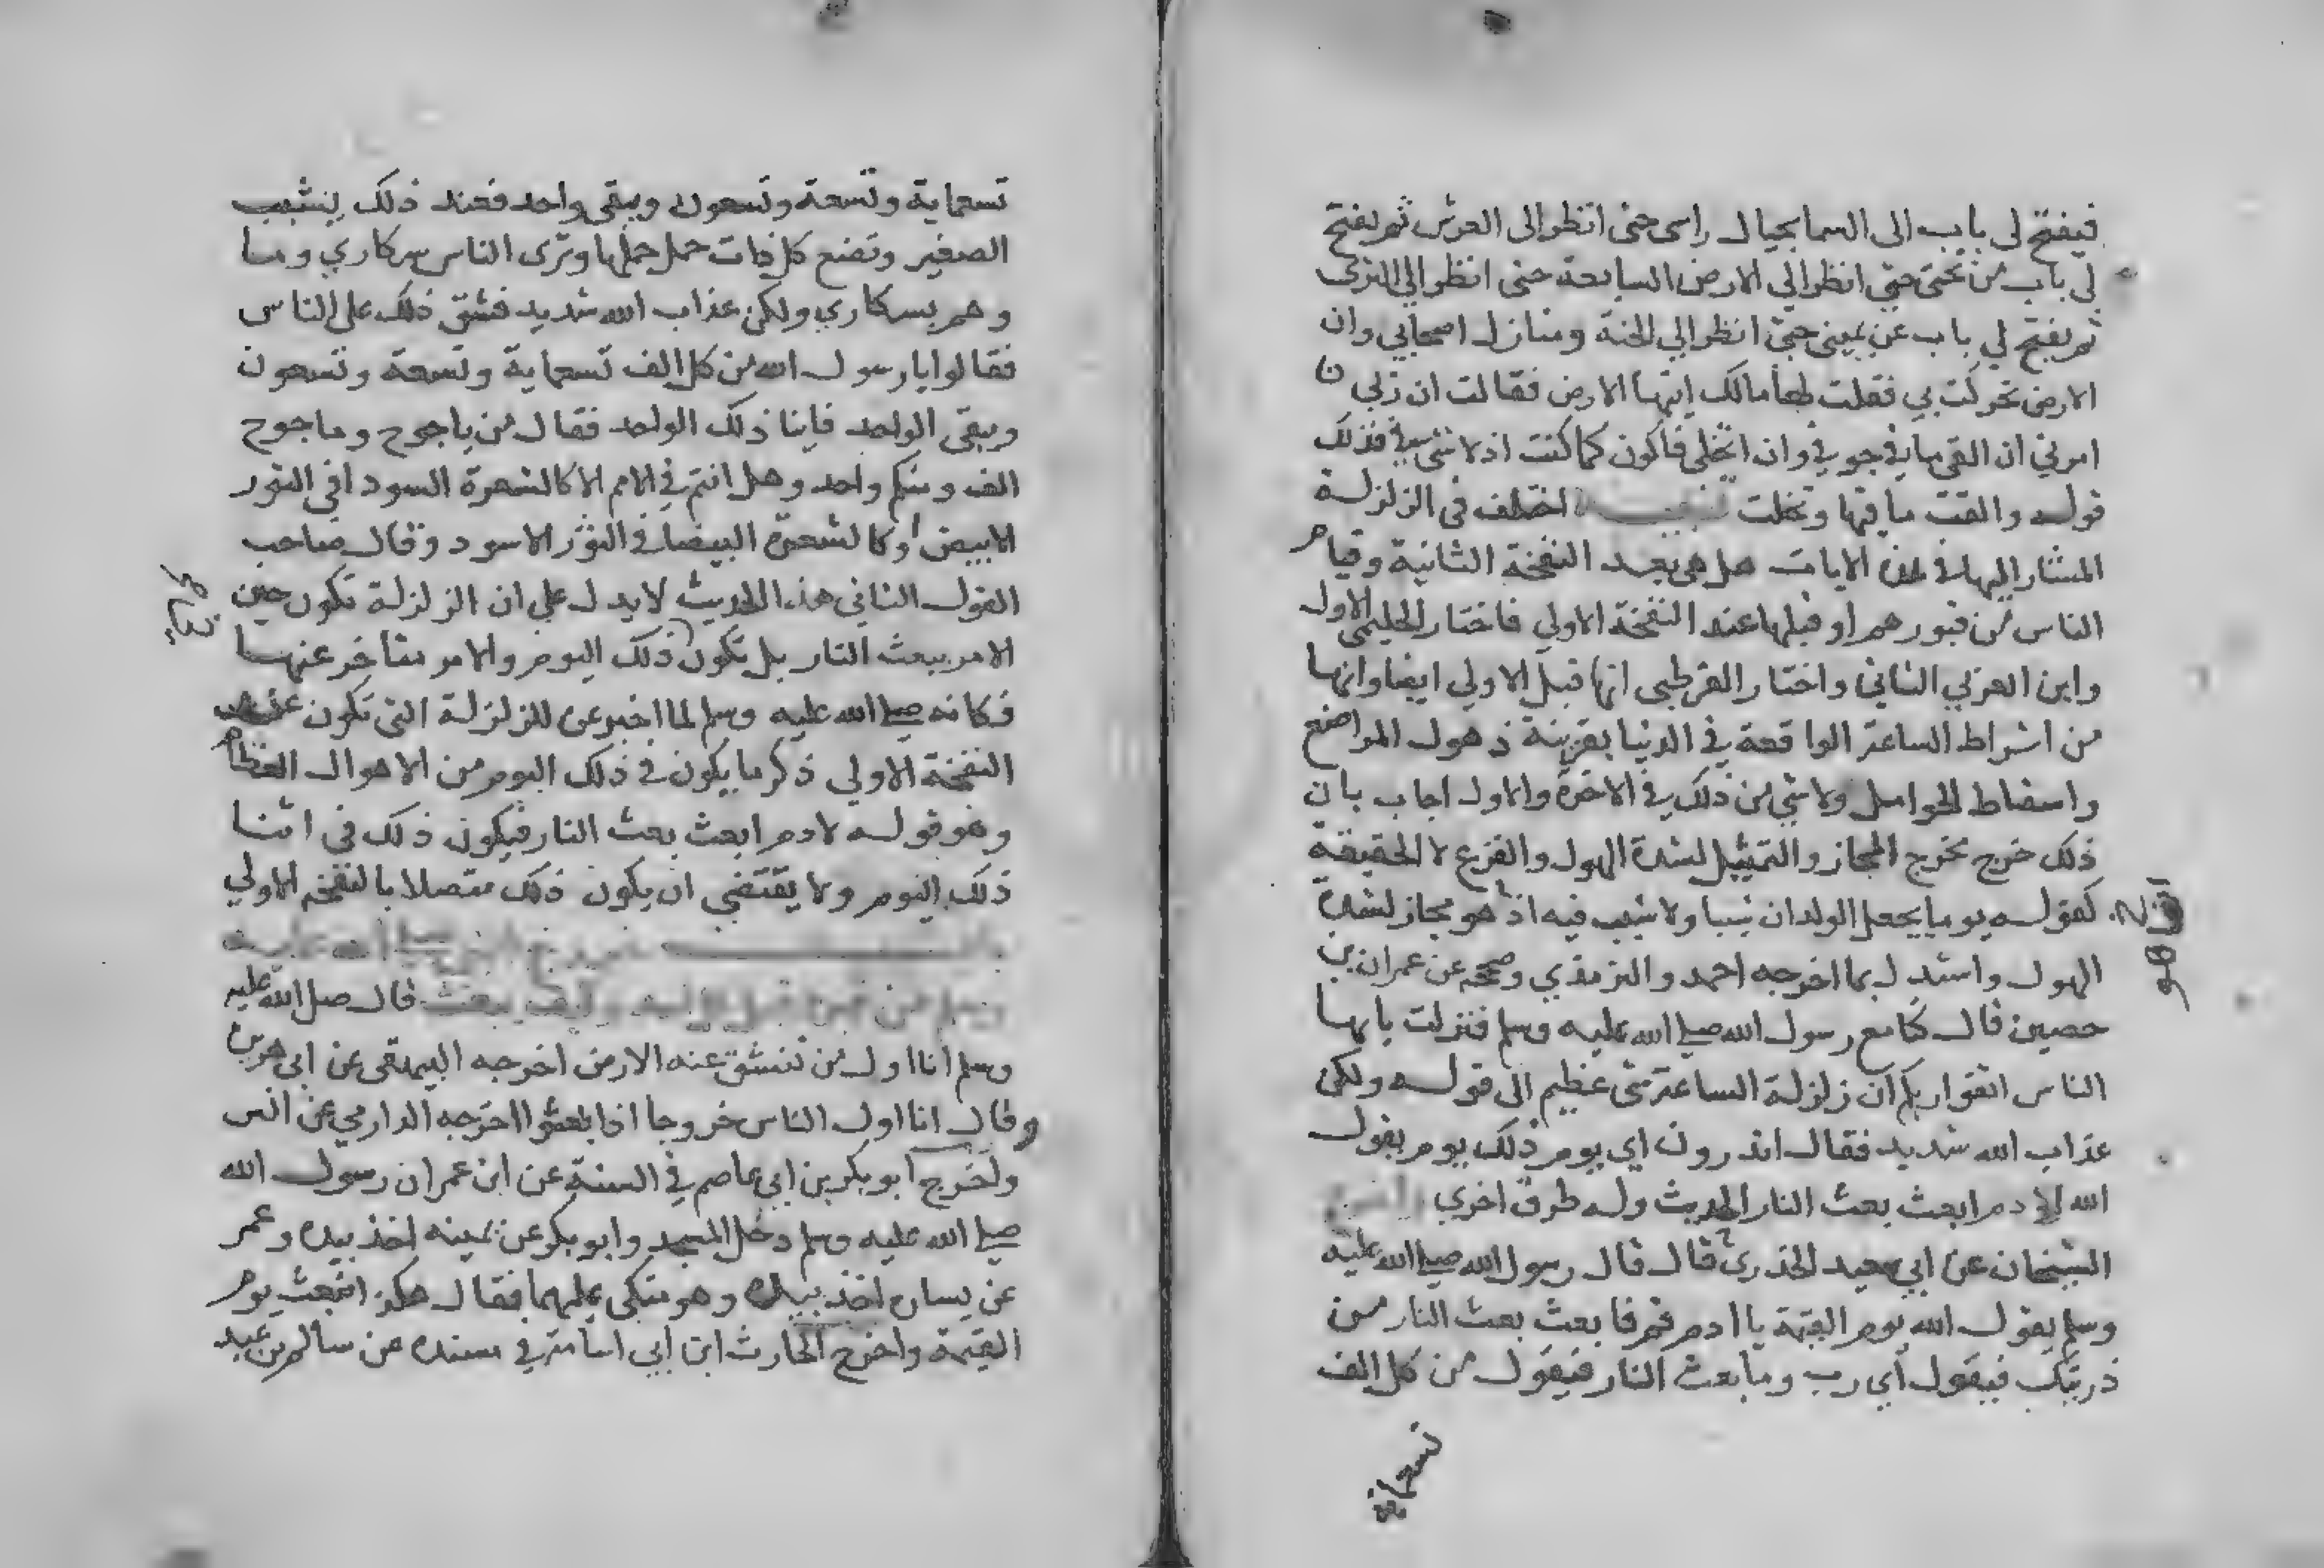 فيفتح لي باب الى السما بحيال راسى حتى انظر الى العرش ثم يفتح
لي باب من تحتى حتى انظر الي الارض السابعة حتى انظر الي الثرى
ثم يفتح لي باب عن يمينى حتى انظر الي الجنة ومنازل اصحابي وان
الارض تحركت بي فقلت لها مالك ايتها الارض فقالت ان ربي
امرني ان القى ما في جوفي وان اتخلى فاكون كما كنت اذ لا شى في فذلك
قوله والقت ما فيها وتخلت تنبيه اختلف فى الزلزلة
المشار اليها في هذه الايات هل هى بعد النفخة الثانية وقيام
الناس من قبورهم او قبلها عند النفخة الاولي فاختار الحليمى الاول
وابن العربي الثاني واختار القرطبى انها قبل الاولي ايضا وانها
من اشراط الساعة الواقعة في الدنيا بقرينة ذهول المراضع
واسقاط الحوامل ولا شي من ذلك في الاخرة والاول اجاب بان
ذلك خرج مخرج المجاز والتمثيل لشدة الهول والفزع لا الحقيقة
كقوله يوما يجعل الولدان شيبا ولا شيب فيه اذ هو مجاز لشدة
الهول واستدل بما اخرجه احمد والترمذي وصححه عن عمران بن
حصين قال كنا مع رسول الله صلى الله عليه وسلم فنزلت يايها
الناس اتقوا ربكم ان زلزلة الساعة شى عظيم الى قوله ولكن
عذاب الله شديد فقال اتدرون اي يوم ذلك يوم يقول
الله لادم ابعث بعث النار الحديث وله طرق اخري
الشيخان عن ابي سعيد الخدري قال قال رسول الله صلى الله عليه
وسلم يقول الله يوم القيمة يا ادم قم فابعث بعث النار من
ذريتك فيقول اي رب وما بعث النار فيقول من كل الف
تسعماية
تسعماية وتسعة وتسعون ويبقى واحد فعند ذلك يشيب
الصغير وتضع كل ذات حمل حملها وترى الناس سكاري وما
وهم بسكاري ولكن عذاب الله شديد فشق ذلك على الناس
فقالوا يا رسول الله من كل الف تسعماية وتسعة وتسعون
ويبقى الواحد فاينا ذلك الواحد فقال من ياجوج وماجوج
الف ومنكم واحد وهل انتم في الامم الا كالشعرة السودا فى الثور
الابيض او كالشعرة البيضا في الثور الاسود وقال صاحب
القول الثاني هذا الحديث لا يدل علي ان الزلزلة تكون حين
الامر ببعث النار بل تكون ذلك اليوم والامر متاخر عنها
فكانه صلى الله عليه وسلم لما اخبر عن الزلزلة التى تكون عند
النفخة الاولي ذكر ما يكون في ذلك اليوم من الاهوال العظام
وهو قوله لادم ابعث بعث النار فيكون ذلك فى اثنا
ذلك اليوم ولا يقتضي ان يكون ذلك متصلا بالنفخة الاولي
باب خروج النبي صلى الله عليه
وسلم من قبره قبل وكيف يبعث قال صلى الله عليه
وسلم انا اول من تنشق عنه الارض اخرجه البيهقى عن ابى هريرة
وقال انا اول الناس خروجا اذا بعثوا اخرجه الدارمي عن انس
واخرج ابو بكر بن ابي عاصم في السنة عن ابن عمر ان رسول الله
صلى الله عليه وسلم دخل المسجد وابو بكر عن يمينه اخذ بيده وعمر
عن يساره اخذ بيده وهو متكى عليهما فقال هكذا نبعث يوم
القيمة واخرج الحارث ابن ابي اسامة في مسنده عن سالم بن عبد